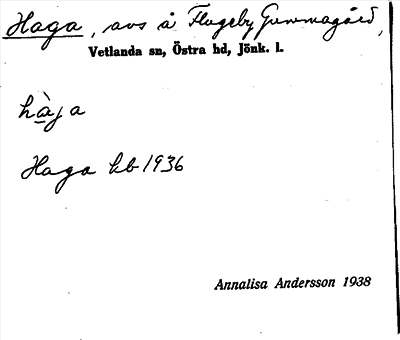 Haga, avs å Flugeby Gunnmagård,
Vetlanda sn, Östra hd, Jönk. l.
hàja
Haga kb 1936
Annalisa Andersson 1938